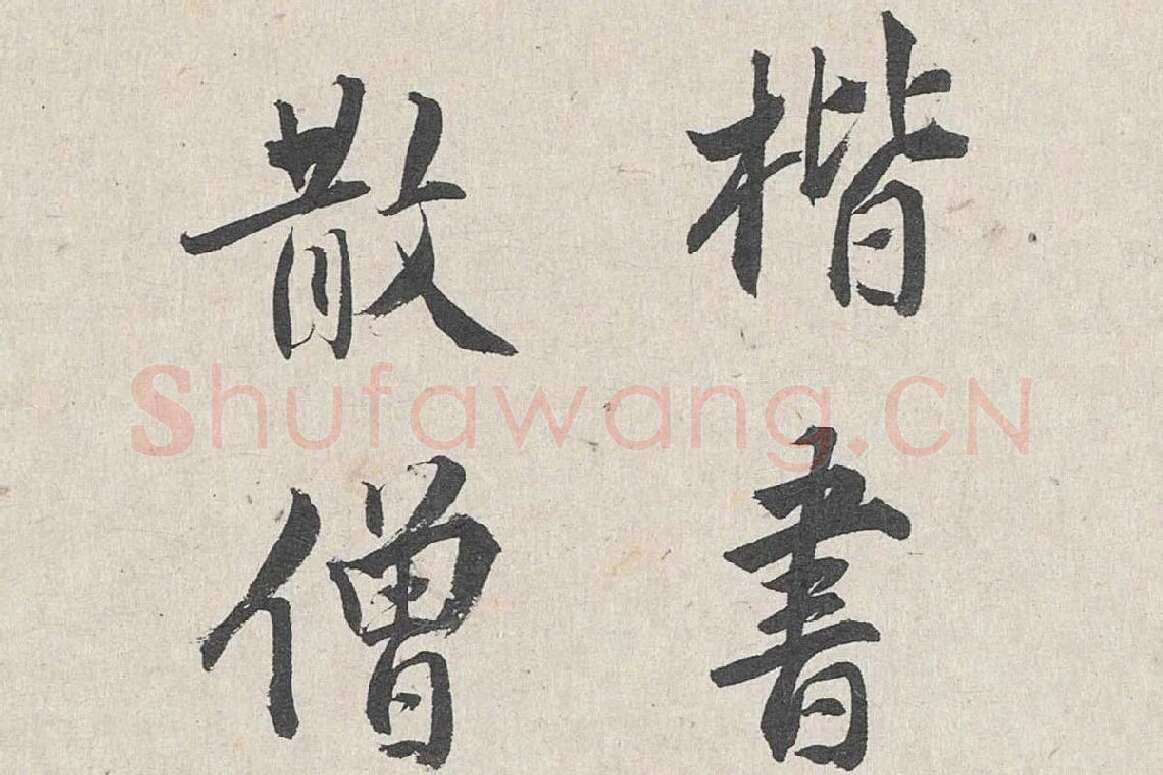 楷書
散僧
Shufawang.CN